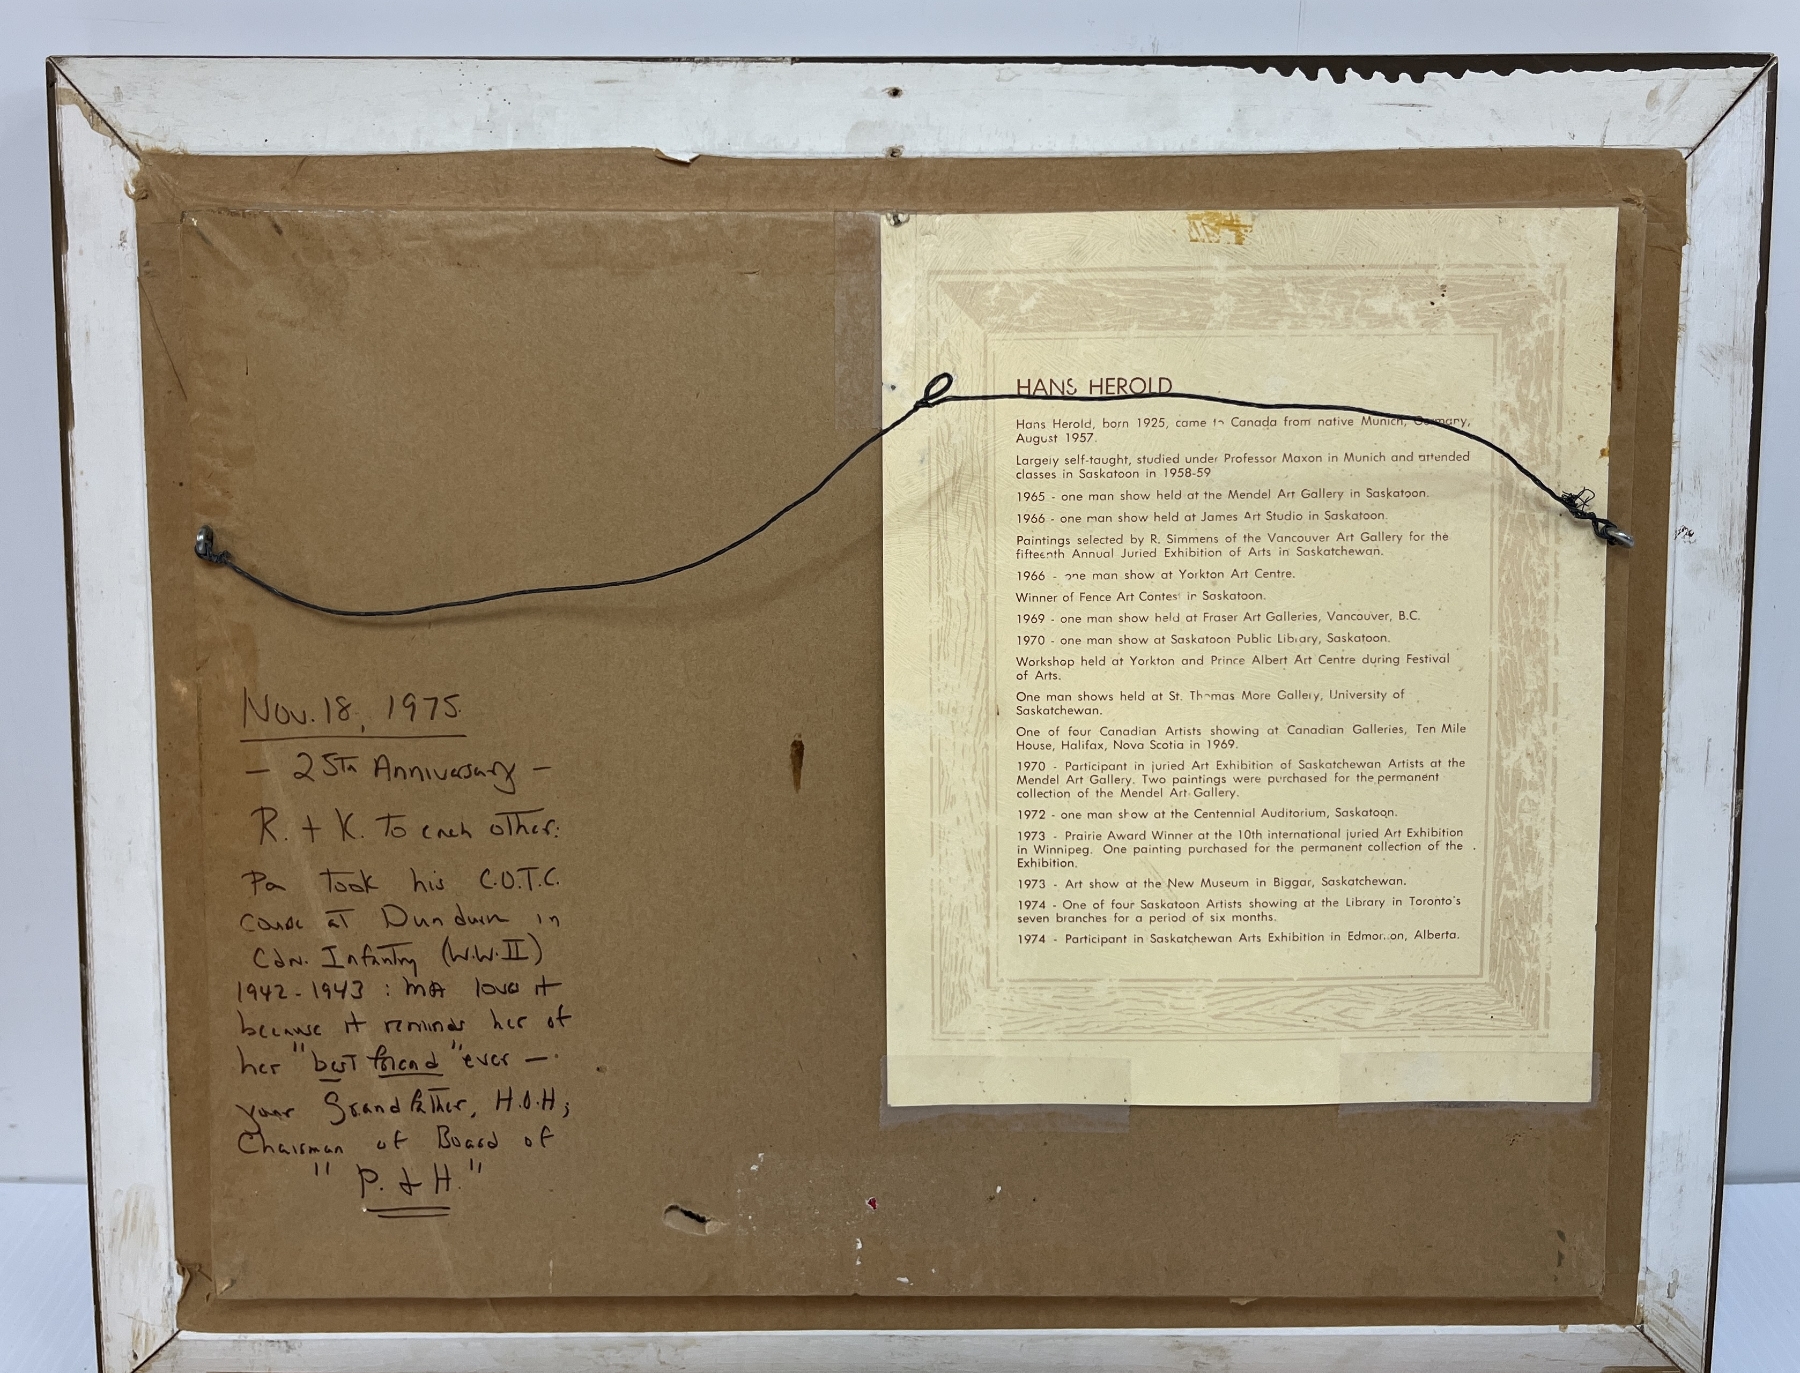 Nov. 18, 1975
- 25Th Anniversary -
R. + K. To each other:
Pa Took his C.O.T.C.
course at Dundurn in
Cdn. Infantry (W.W.II)
1942-1943 : MA loves it
because it reminds her of
her "best friend" ever -
your Grandfather, H.O.H;
Chairman of Board of
"P. & H."
HANS HEROLD
Hans Herold, born 1925, came to Canada from native Munich, Germany,
August 1957.
Largely self-taught, studied under Professor Maxon in Munich and attended
classes in Saskatoon in 1958-59
1965 - one man show held at the Mendel Art Gallery in Saskatoon.
1966 - one man show held at James Art Studio in Saskatoon.
Paintings selected by R. Simmens of the Vancouver Art Gallery for the
fifteenth Annual Juried Exhibition of Arts in Saskatchewan.
1966 - one man show at Yorkton Art Centre.
Winner of Fence Art Contest in Saskatoon.
1969 - one man show held at Fraser Art Galleries, Vancouver, B.C.
1970 - one man show at Saskatoon Public Library, Saskatoon.
Workshop held at Yorkton and Prince Albert Art Centre during Festival
of Arts.
One man shows held at St. Thomas More Gallery, University of
Saskatchewan.
One of four Canadian Artists showing at Canadian Galleries, Ten Mile
House, Halifax, Nova Scotia in 1969.
1970 - Participant in juried Art Exhibition of Saskatchewan Artists at the
Mendel Art Gallery. Two paintings were purchased for the permanent
collection of the Mendel Art Gallery.
1972 - one man show at the Centennial Auditorium, Saskatoon.
1973 - Prairie Award Winner at the 10th international juried Art Exhibition
in Winnipeg. One painting purchased for the permanent collection of the
Exhibition.
1973 - Art show at the New Museum in Biggar, Saskatchewan.
1974 - One of four Saskatoon Artists showing at the Library in Toronto's
seven branches for a period of six months.
1974 - Participant in Saskatchewan Arts Exhibition in Edmonton, Alberta.